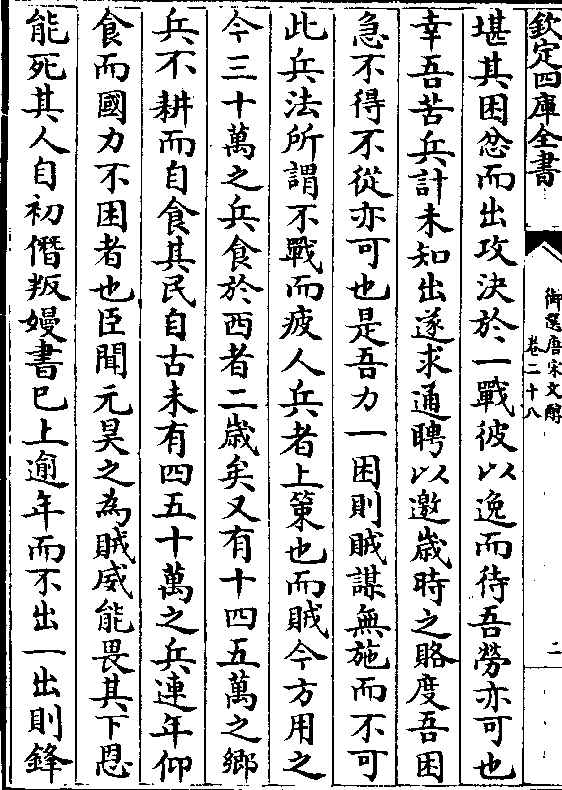 欽定四庫全書
御選唐宋文醇
卷二十八
二
堪其困忿而出攻決於一戰彼以逸而待吾勞亦可也
幸吾苦兵計未知出遂求通聘以邀歲時之賂度吾困
急不得不從亦可也是吾力一困則賊謀無施而不可
此兵法所謂不戰而疲人兵者上策也而賊今方用之
今三十萬之兵食於西者二歲矣又有十四五萬之鄉
兵不耕而自食其民自古未有四五十萬之兵連年仰
食而國力不困者也臣聞元昊之為賊威能畏其下恩
能死其人自初僭叛嫚書已上逾年而不出一出則鋒